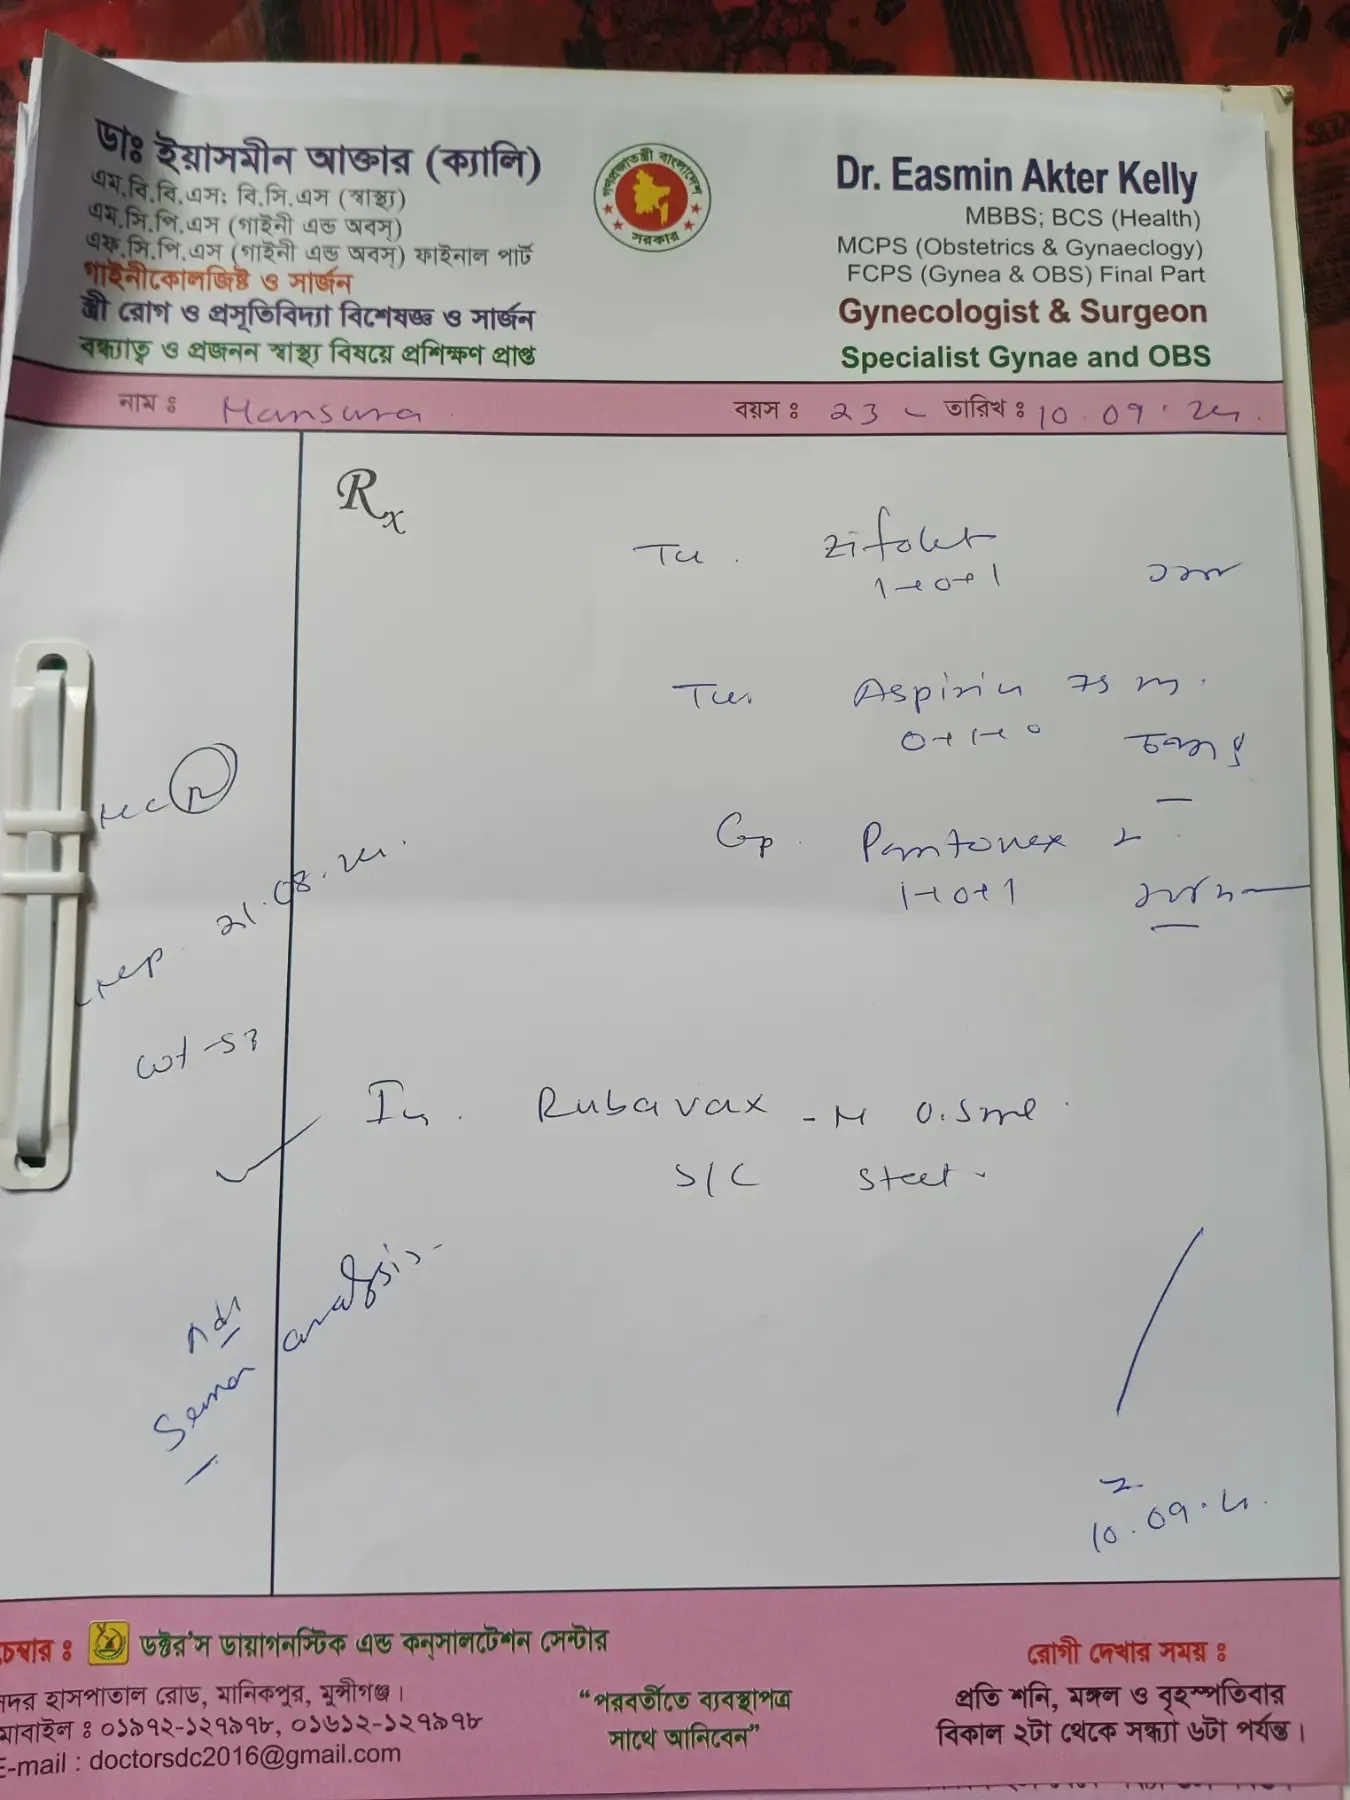 ডাঃ ইয়াসমীন আক্তার (ক্যালি)
এম.বি.বি.এস; বি.সি.এস (স্বাস্থ্য)
এম.সি.পি.এস (গাইনী এন্ড অবস্)
এফ.সি.পি.এস (গাইনী এন্ড অবস্) ফাইনাল পার্ট
গাইনীকোলজিষ্ট ও সার্জন
স্ত্রী রোগ ও প্রসূতিবিদ্যা বিশেষজ্ঞ ও সার্জন
বন্ধ্যাত্ব ও প্রজনন স্বাস্থ্য বিষয়ে প্রশিক্ষণ প্রাপ্ত
গণপ্রজাতন্ত্রী বাংলাদেশ
সরকার
Dr. Easmin Akter Kelly
MBBS; BCS (Health)
MCPS (Obstetrics & Gynaeclogy)
FCPS (Gynea & OBS) Final Part
Gynecologist & Surgeon
Specialist Gynae and OBS
নাম ঃ Mansura বয়স ঃ 23 তারিখ ঃ 10.09.24.
Rx
Zifolet
1+0+1
Aspirin 75 m.
0+1+0
চলবে
Pantonex 2
1+0+1
21.08.24.
wt - 53
Inj. Rubavax - M 0.5ml.
S/C stat.
Adv
Semen analysis
10.09.24.
চেম্বার ঃ ডক্টর'স ডায়াগনস্টিক এন্ড কন্সালটেশন সেন্টার
সদর হাসপাতাল রোড, মানিকপুর, মুন্সীগঞ্জ।
মোবাইল ঃ ০১৯১২-১২৭৯৭৮, ০১৬১২-১২৭৯৭৮
E-mail : doctorsdc2016@gmail.com
“পরবর্তীতে ব্যবস্থাপত্র
সাথে আনিবেন”
রোগী দেখার সময় ঃ
প্রতি শনি, মঙ্গল ও বৃহস্পতিবার
বিকাল ২টা থেকে সন্ধ্যা ৬টা পর্যন্ত।